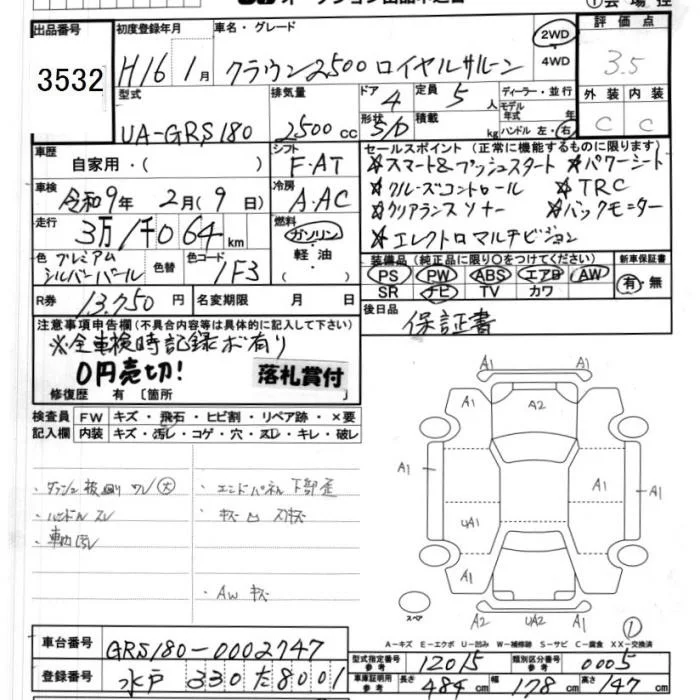 出品番号
3532
初度登録年月
H16年1月
車名・グレード
クラウン2500 ロイヤルサルーン
2WD
4WD
評価点
3.5
外装 内装
C C
型式
UA-GRS180
排気量
2500cc
ドア 4
形状 S/D
定員 5人
積載 kg
ディーラー・並行
モデル年式 年
ハンドル 左・右
車歴
自家用・( )
シフト
F・AT
車検
令和9年 2月(9日)
冷房
A・AC
走行
3万1千064km
燃料
ガソリン
軽油
( )
色 プレミアムシルバーパール
色替
色コード 1F3
R券 13,750円
名変期限 月 日
セールスポイント(正常に機能するものに限ります)
☆スマート&プッシュスタート ☆パワーシート
☆クルーズコントロール ☆TRC
☆クリアランスソナー ☆バックモニター
☆エレクトロマルチビジョン
装備品(純正品に限り○をつけてください)
PS PW ABS エアB AW
SR ナビ TV カワ
新車保証書
有・無
後日品
保証書
注意事項申告欄(不具合内容等は具体的に記入して下さい)
※全車検時記録ボ有り
0円売切!
落札賞付
修復歴 有 〔箇所
検査員記入欄
FW キズ・飛石・ヒビ割・リペア跡・×要
内装 キズ・汚レ・コゲ・穴・スレ・キレ・破レ
・ハンドルスレ
・エンドパネル下部歪
・AWキズ
A1 A1
A1 A2 A1
A1 A1 A1
UA1
A1
A2 UA2 A1
スペア
①
A-キズ E-エクボ U-凹み W-補修跡 S-サビ C-腐食 XX-交換済
車台番号 GRS180-0002747
登録番号 水戸 330 た 8001
型式指定番号 参考 12015
類別区分番号 参考 0005
車庫証明用 参考 長さ 484cm 幅 178cm 高さ 147cm